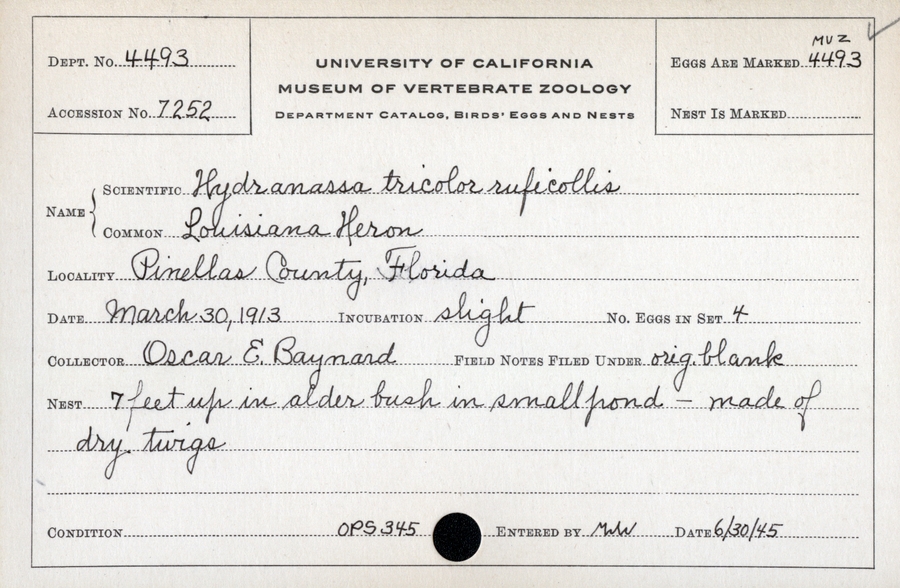 DEPT. No. 4493
ACCESSION No. 7252
UNIVERSITY OF CALIFORNIA
MUSEUM OF VERTEBRATE ZOOLOGY
DEPARTMENT CATALOG, BIRDS' EGGS AND NESTS
MVZ
EGGS ARE MARKED 4493
NEST IS MARKED
NAME
SCIENTIFIC Hydranassa tricolor ruficollis
COMMON Louisiana Heron
LOCALITY Pinellas County, Florida
DATE March 30, 1913 INCUBATION slight No. EGGS IN SET 4
COLLECTOR Oscar E. Baynard FIELD NOTES FILED UNDER orig. blank
NEST 7 feet up in alder bush in small pond — made of
dry twigs
CONDITION OPS 345 ENTERED BY DATE 6/30/45